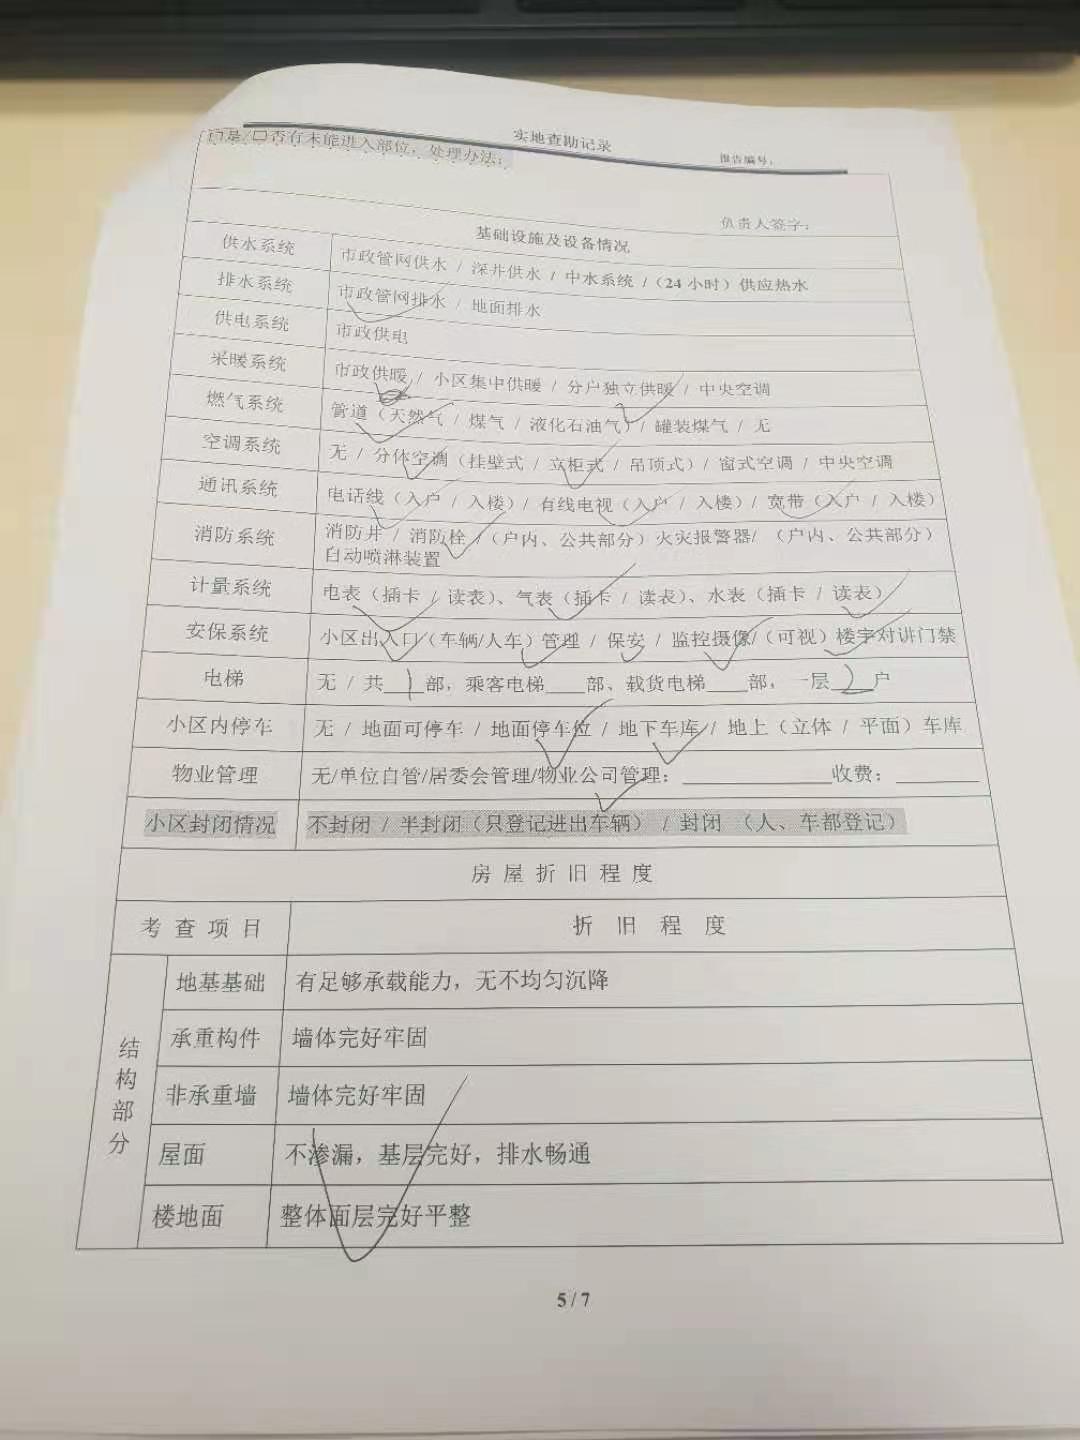 实地查勘记录
报告编号：
□是/□否有未能进入部位，处理办法：
负责人签字：
基础设施及设备情况
供水系统 市政管网供水 / 深井供水 / 中水系统 /（24 小时）供应热水
排水系统 市政管网排水 / 地面排水
供电系统 市政供电
采暖系统 市政供暖 / 小区集中供暖 / 分户独立供暖 / 中央空调
燃气系统 管道（天然气 / 煤气 / 液化石油气）/ 罐装煤气 / 无
空调系统 无 / 分体空调（挂壁式 / 立柜式 / 吊顶式）/ 窗式空调 / 中央空调
通讯系统 电话线（入户 / 入楼）/ 有线电视（入户 / 入楼）/ 宽带（入户 / 入楼）
消防系统 消防井 / 消防栓 /（户内、公共部分）火灾报警器/ （户内、公共部分）
自动喷淋装置
计量系统 电表（插卡 / 读表）、气表（插卡 / 读表）、水表（插卡 / 读表）
安保系统 小区出入口（车辆/人车）管理 / 保安 / 监控摄像/（可视）楼宇对讲门禁
电梯 无 / 共 1 部，乘客电梯____部、载货电梯____部，一层 2 户
小区内停车 无 / 地面可停车 / 地面停车位 / 地下车库 / 地上（立体 / 平面）车库
物业管理 无/单位自管/居委会管理/物业公司管理：______________收费：________
小区封闭情况 不封闭 / 半封闭（只登记进出车辆） / 封闭 （人、车都登记）
房屋折旧程度
考查项目 折旧程度
结构部分
地基基础 有足够承载能力，无不均匀沉降
承重构件 墙体完好牢固
非承重墙 墙体完好牢固
屋面 不渗漏，基层完好，排水畅通
楼地面 整体面层完好平整
5 / 7